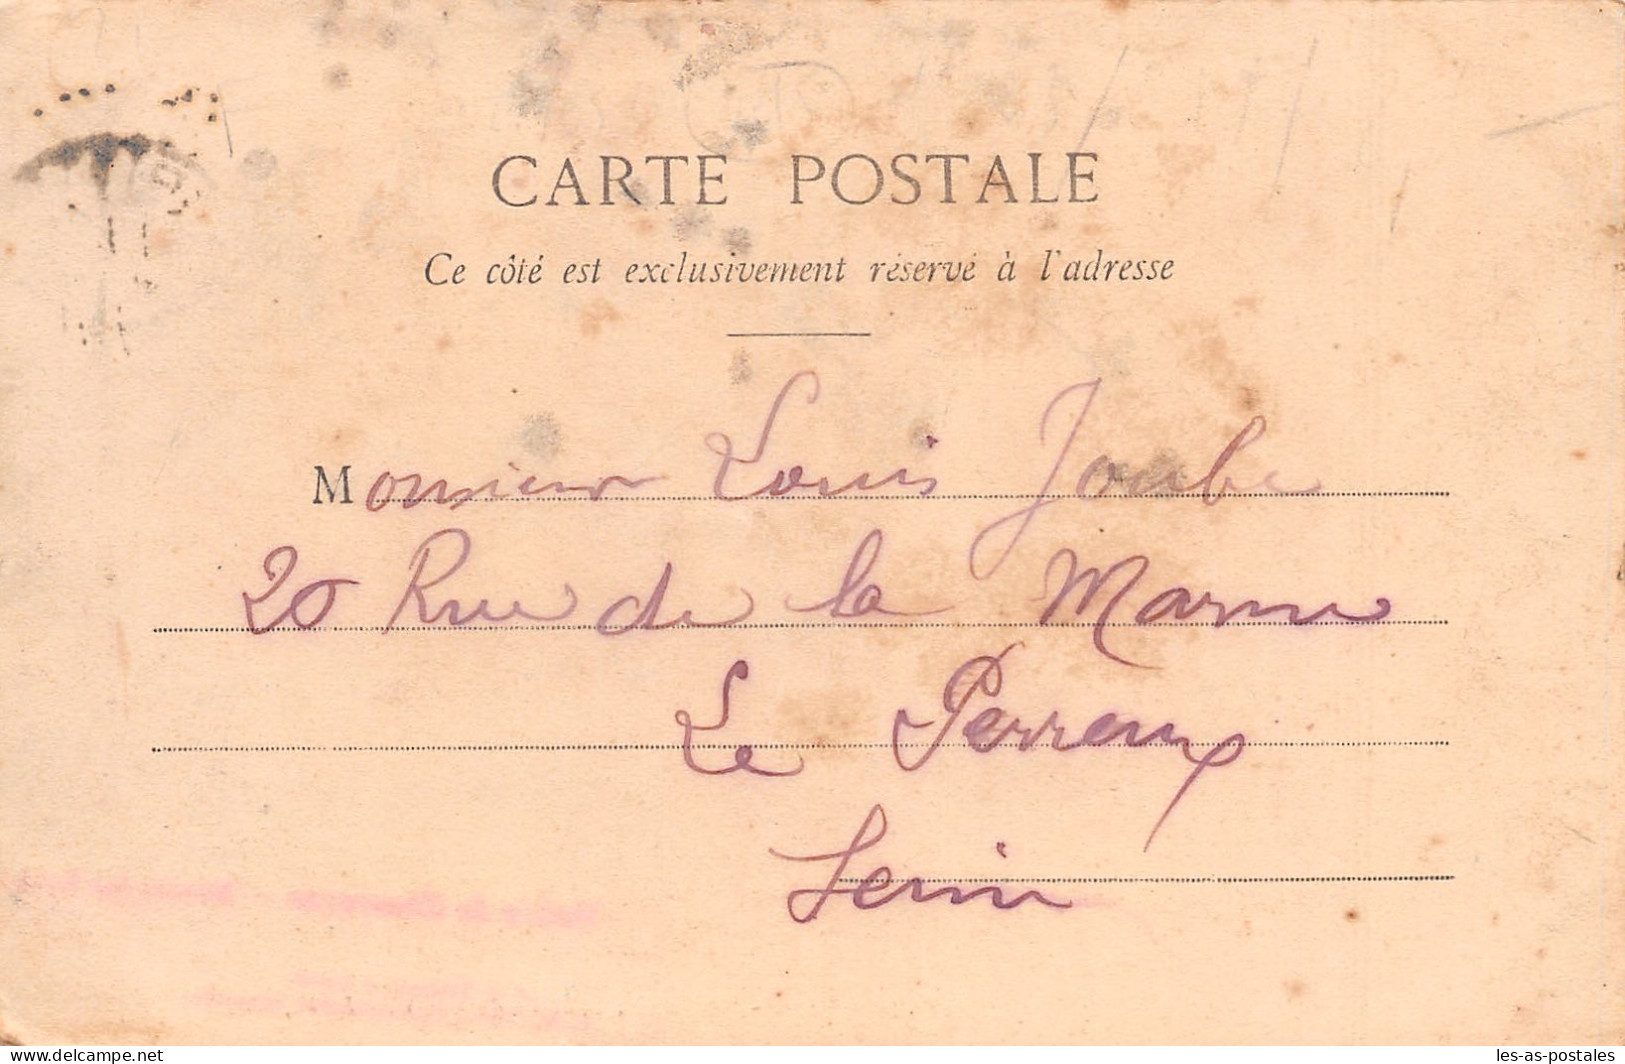 CARTE POSTALE
Ce côté est exclusivement réservé à l'adresse
Monsieur Louis Joube
20 Rue de la Marne
Le Perreux
Seine
www.delcampe.net
les-as-postales